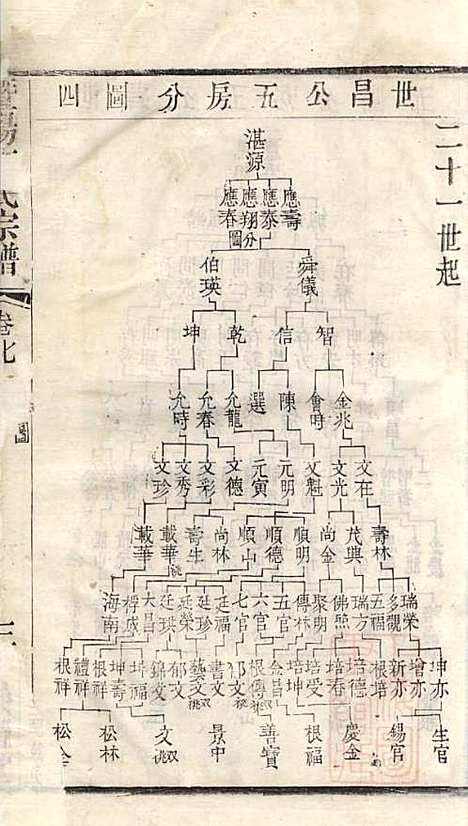 世昌公五房分圖四
二十一世起
氏宗譜
卷七
圖
湛源
應壽 應泰 應翔分圖 應春
舜儀 伯瑛
智 信 乾 坤
金兆 會時 陳 選 允龍 允春 允時
文在 文光 文魁 元明 元寅 文德 文彩 文秀 文珍
壽林 茂興 尚金 順明 順德 順山 尚林 壽生 載華祧 載華
瑞榮 多觀 五福 瑞方 佛熊 聰明 傳林 五官 六官 七官 廷福 廷珍 廷榮 廷琪 大昌 桴成 海南
坤亦 增亦 新亦 根培 培德 培春 培受 培坤 金昌 根傳 文 書文 藝文祧 郁文 錦文 坤福 坤壽 根祥 禮祥 根祥
生官 錫官 慶金 根福 善寶 景中 文 雙祧 松林 松全